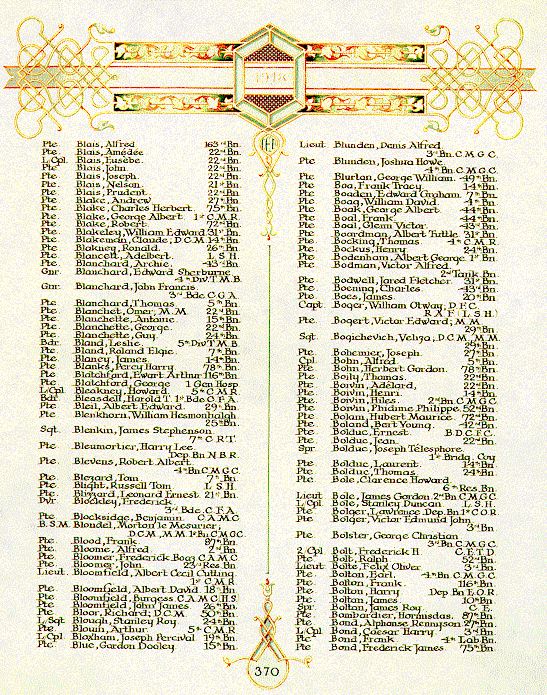 1918
Pte. Blais, Alfred 163rd Bn.
Pte. Blais, Amédée 22nd Bn.
L/Cpl. Blais, Eusèbe. 22nd Bn.
Pte. Blais, John 22nd Bn.
Pte. Blais, Joseph. 22nd Bn.
Pte. Blais, Nelson. 21st Bn.
Pte. Blais, Prudent. 22nd Bn.
Pte. Blake, Andrew 27th Bn.
Pte. Blake, Charles Herbert. 75th Bn.
Pte. Blake, George Albert. 1st C.M.R.
Pte. Blake, Robert. 72nd Bn.
Pte. Blakeley, William Edward 31st Bn.
Pte. Blakeman, Claude, D.C.M. 14th Bn.
Pte. Blakney, Ronald. 26th Bn.
Pte. Blancett, Adelbert. L.S.H.
Pte. Blanchard, Archie. 43rd Bn.
Gnr. Blanchard, Edward Sherburne
4th Div. T.M.B.
Gnr. Blanchard, John Francis.
3rd Bde C.G.A.
Pte. Blanchard, Thomas. 5th Bn.
Pte. Blanchet, Omer, M.M. 22nd Bn.
Pte. Blanchette, Antoine 15th Bn.
Pte. Blanchette, George. 22nd Bn.
Pte. Blanchette, Guy. 24th Bn.
Bdr. Bland, Leslie. 5th Div T.M.B.
Pte. Bland, Roland Elgie. 7th Bn.
Pte. Blaney, James. 14th Bn.
Pte. Blanks, Percy Harry 78th Bn.
Pte. Blatchford, Ewart Arthur 116th Bn.
Pte. Blatchford, George 1 Gen Hosp.
L/Cpl. Bleakney, Howard. 5th C.M.R.
Bdr. Bleasdell, Harold T. 1st Bde C.F.A.
Pte. Bleil, Albert Edward. 29th Bn.
Pte. Blenkhorn, William Hesmonalgh
25th Bn.
Sgt. Blenkin, James Stephenson.
7th C.R.T.
Pte. Bleumortier, Harry Lee
Dep. Bn N.B.R.
Pte. Blevens, Robert Albert
4th Bn C.M.G.C.
Pte. Blezard, Tom 7th Bn.
Pte. Blight, Russell Tom L.S.H.
Pte. Blizzard, Leonard Ernest. 21st Bn.
Dvr. Blockley, Frederick.
3rd Bde. C.F.A.
Pte. Blocksidge, Benjamin. C.A.M.C
B.S.M. Blondel, Morton le Mesurier,
D.C.M., M.M. 1st Bn C.M.G.C.
Pte. Blood, Frank 87th Bn.
Pte. Bloome, Alfred 2nd Bn.
Pte. Bloomer, Frederick Boag C.A.M.C
Pte. Bloomer, John. 23rd Res. Bn.
Lieut. Bloomfield, Albert Cecil Cutting.
1st C.M.R.
Pte. Bloomfield, Albert David 18th Bn.
Pte. Bloomfield, Burgess C.A.M.C.H.S.
Pte. Bloomfield, John James 26th Bn.
Pte. Bloor, Richard; D.C.M. 50th Bn.
L/Sgt. Blough, Stanley Roy 24th Bn.
Pte. Blouin, Arthur 5th C.M.R
L/Cpl. Bloxham, Joseph Percival 19th Bn.
Pte. Blue, Gordon Dooley. 15th Bn.
Lieut. Blunden, Denis Alfred
3rd Bn. C.M.G.C.
Pte. Blunden, Joshua Howe.
4th Bn. C.M.G.C.
Pte. Blurton, George William. 49th Bn.
Pte. Boa, Frank Tracy. 14th Bn.
Pte. Boaden, Edward Graham 7th Bn.
Pte. Boag, William David 4th Bn.
Pte. Boak, George Albert. 44th Bn.
Pte. Boal, Frank 44th Bn.
Pte. Boal, Glenn Victor. 43rd Bn.
Pte. Boardman, Albert Tuttle 31st Bn.
Pte. Bocking, Thomas. 4th C.M.R.
Pte. Bockus, Henry 24th Bn.
Pte. Bodenham, Albert George. 1st Bn.
Pte. Bodman, Victor Alfred.
2nd Tank Bn.
Pte. Bodwell, Jared Fletcher. 31st Bn.
Pte. Boening, Charles 43rd Bn.
Pte. Boes, James 20th Bn.
Capt. Boger, William Otway, D.F.C.
R.A.F. (L.S.H.)
Pte. Bogert, Victor Edward; M.M.
29th Bn.
Sgt. Bogichevich, Veliza, D.C.M., M.M.
29th Bn.
Pte. Bohemier, Joseph. 27th Bn.
Cpl. Bohn, Alfred. 5th Bn.
Pte. Bohn, Herbert Gordon. 78th Bn.
Pte. Boily, Thomas. 22nd Bn.
Pte. Boivin, Adélard. 22nd Bn.
Pte. Boivin, Henri. 14th Bn.
Pte. Boivin, Jules. 2nd Bn. C.M.G.C.
Pte. Boivin, Phidime Philippe. 52nd Bn.
Pte. Bolam, Hubert Maurice 72nd Bn.
Pte. Boland, Bert Young. 42nd Bn.
Pte. Bolduc, Ernest. B.D.C.F.C.
Pte. Bolduc, Jean. 22nd Bn.
Spr. Bolduc, Joseph Télesphore.
1st Bridg. Coy
Pte. Bolduc, Laurent. 14th Bn.
Pte. Bolduc, Thomas 24th Bn.
Pte. Bole, Clarence Howard.
6th Res. Bn.
Lieut. Bole, James Gordon. 2nd Bn C.M.G.C.
L/Cpl. Bole, Stanley Duncan L.S.H.
Pte. Bolger, Lawrence Dep. Bn 1st C.O.R.
Pte. Bolger, Victor Edmund John
3rd Bn.
Pte. Bolster, George Christian
3rd Bn. C.M.G.C.
2/Cpl. Bolt, Frederick H. C.E.T.D.
Pte. Bolt, Ralph 52nd Bn.
Lieut. Bolte, Felix Oliver 3rd Bn.
Pte. Bolton, Earl. 4th Bn. C.M.G.C.
Pte. Bolton, Frank. 116th Bn.
Pte. Bolton, Harry Dep Bn E.O.R.
Pte. Bolton, James. 10th Bn.
Spr. Bolton, James Roy C.E.
Pte. Bombardier, Hormisdas. 87th Bn.
Pte. Bond, Alphonse Rennyson 27th Bn.
L/Cpl. Bond, Caesar Harry 3rd Bn.
Pte. Bond, Frank. 4th Lab. Bn.
Pte. Bond, Frederick James 75th Bn.
370